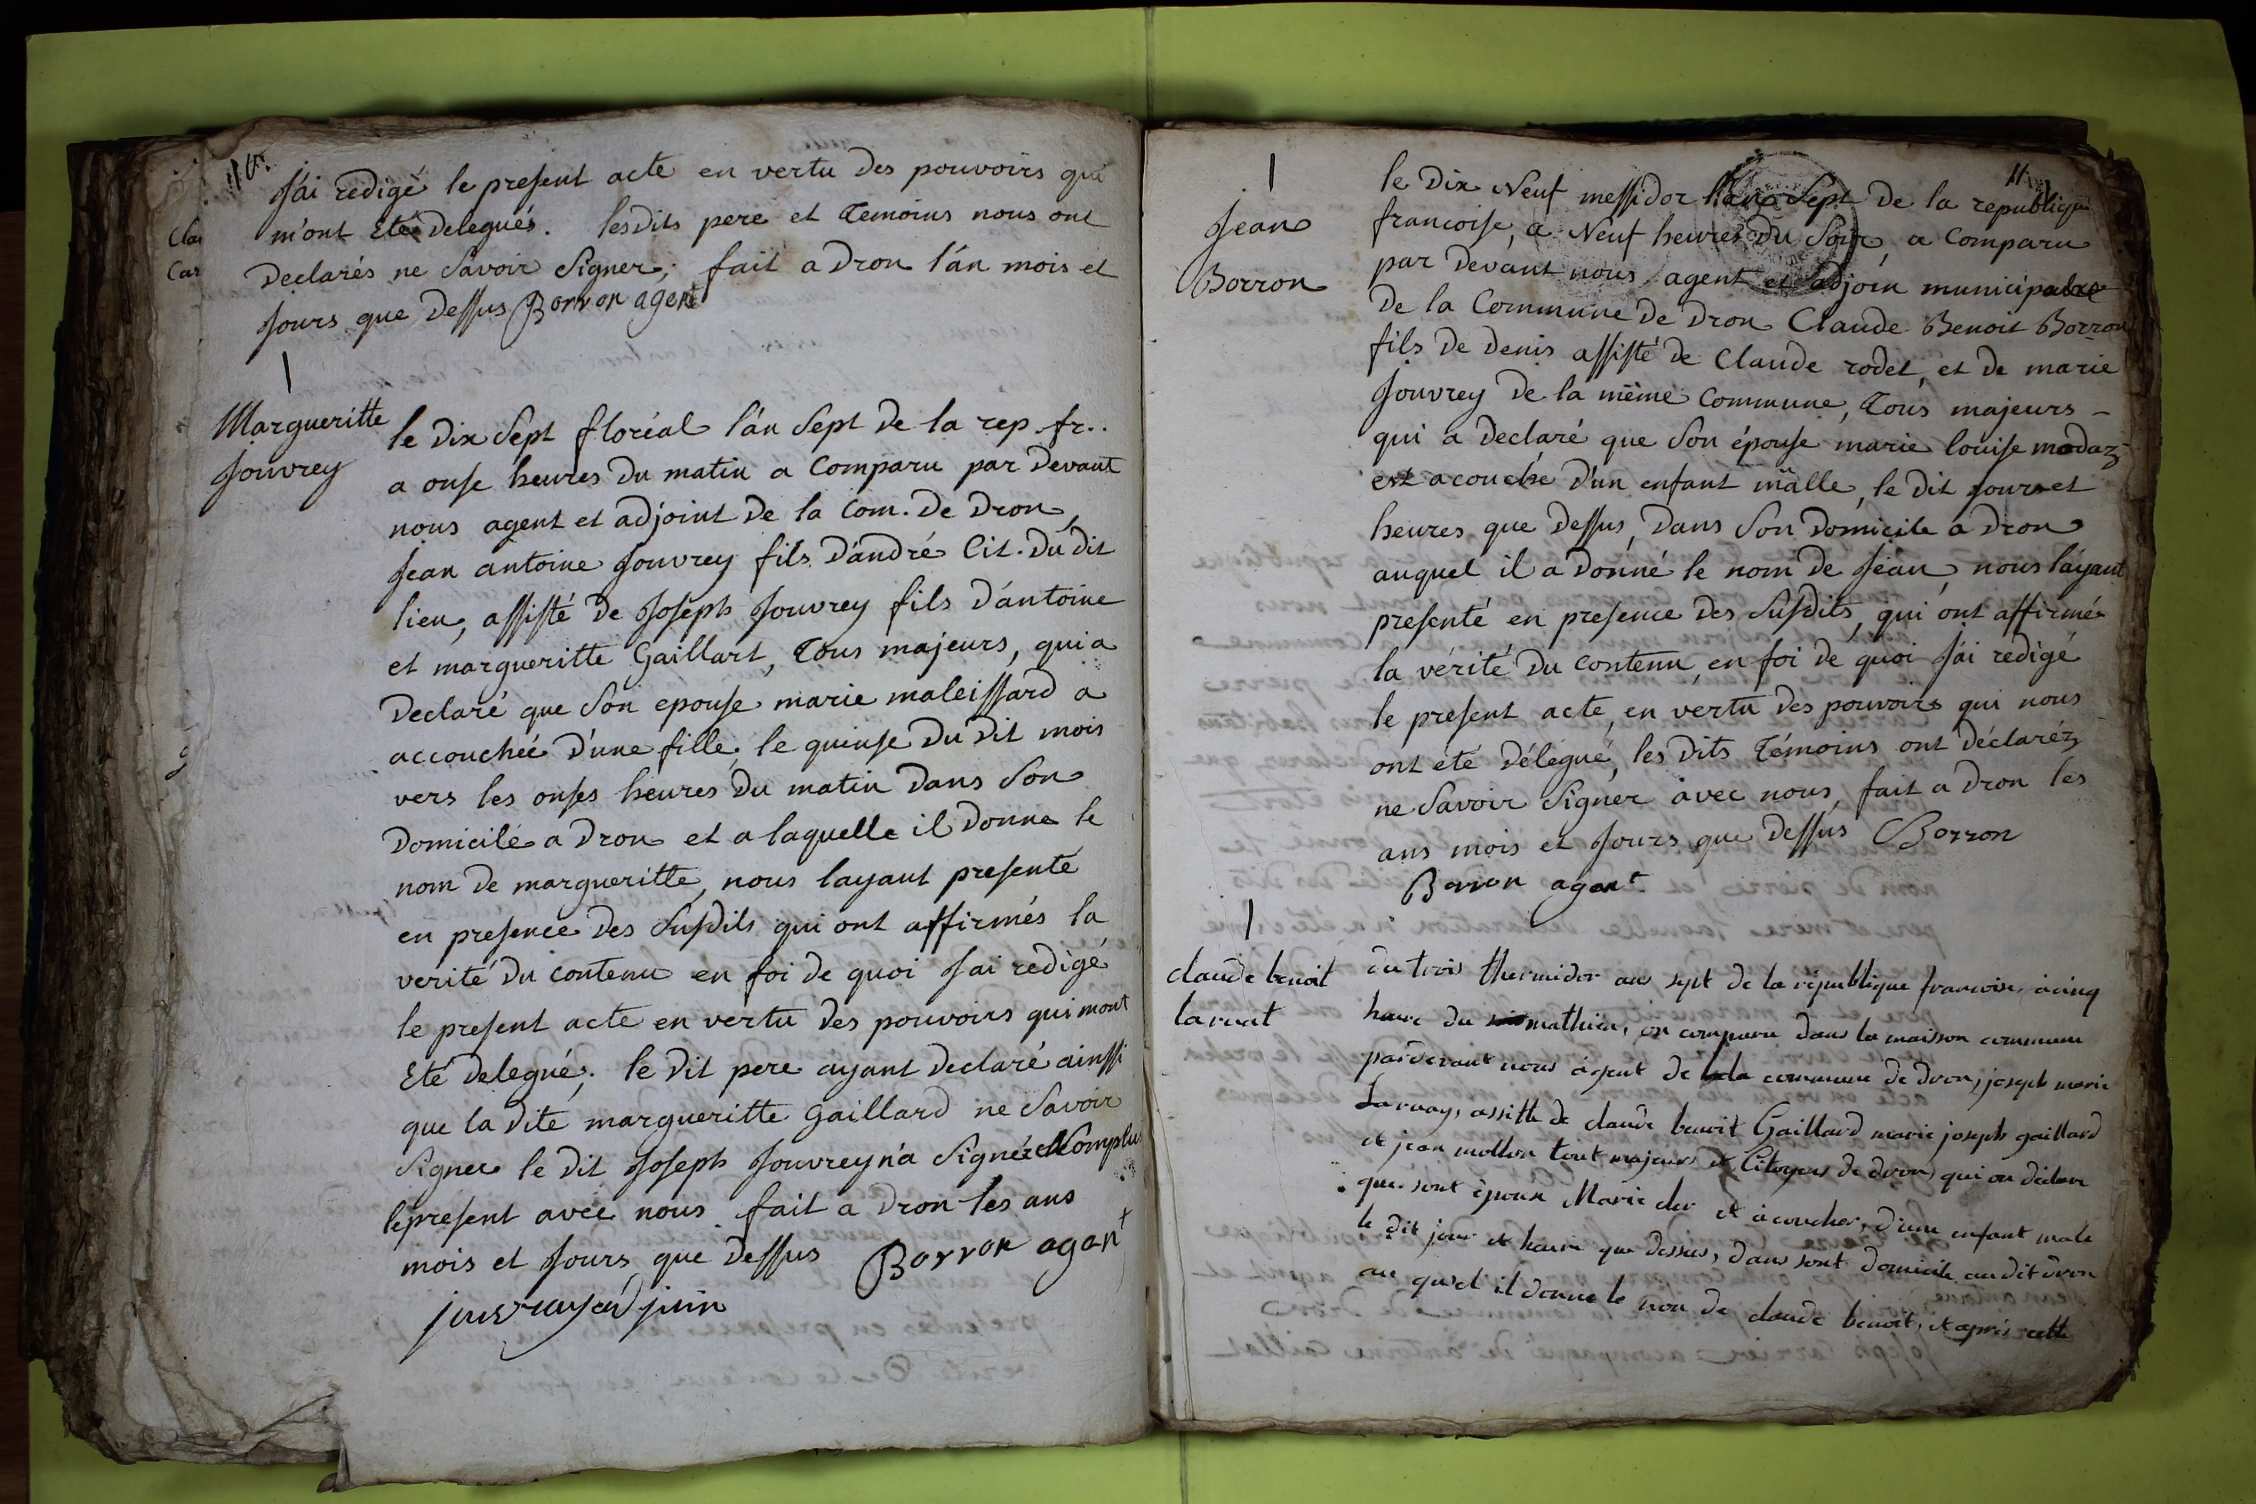 J'ai redigé le present acte en vertu des pouvoirs qui
m'ont Eté delegués. lesdits pere et Temoins nous ont
Declarés ne Savoir Signer; fait a Dron l'an mois et
Jours que Dessus Borron agent
Margueritte
Jouvrey
le dix Sept floréal l'an Sept de la rep. fr..
a onse heures du matin a Comparu par devant
nous agent et adjoint de la Com. de dron,
Jean antoine Jouvrey fils d'andré Cit. du dit
lieu, assisté de Joseph Jouvrey fils d'antoine
et margueritte Gaillart, Tous majeurs, qui a
Declaré que Son epouse marie maleissard a
accouchée d'une fille, le quinse du dit mois
vers les onses heures du matin dans Son
Domicile a dron et a laquelle il donne le
nom de margueritte, nous layant presenté
en presence des Susdits qui ont affirmés la
verité du contenu en foi de quoi J'ai redigé
le present acte en vertu des pouvoirs qui mont
Eté delegué. le dit pere ayant declaré ainssi
que la dite margueritte Gaillard ne Savoir
Signer le dit Joseph Jouvrey n'a Signé
le present avec nous. fait a dron les ans
mois et Jours que dessus Borron agent
11
Jean
Borron
le dix Neuf messidor l'an Sept de la republique
francoise, a Neuf heures du Soir, a Comparu
par devant nous agent et adjoin municipal
de la Commune de dron Claude Benoit Borron
fils de denis assisté de Claude rodet, et de marie
Jouvrey de la même Commune, Tous majeurs -
qui a declaré que Son épouse marie louise modaz
est acouché d'un enfant mâlle, le dit jour et
heures que dessus, dans Son domicile a dron
auquel il a donné le nom de Jéan, nous l'ayant
presenté en presence des Susdits, qui ont affirmé
la vérité du contenu, en foi de quoi J'ai redigé
le present acte, en vertu des pouvoirs qui nous
ont été délégué, les dits Témoins ont déclaréz
ne Savoir Signer avec nous, fait a dron les
ans mois et Jours que dessus Borron
Borron agent
claude benoit
laruat
du trois thermidor an sept de la république francoise, à cinq
heure du mathin, on comparu dans la maison commune
pardevant nous agent de la commune de dron, joseph marie
Laruay, assitté de claude benoit Gaillard marie joseph gaillard
et jean mollon tout majeurs et Citoyens de dron, qui on déclare
que sont époux Marie et acoucher, d'une enfant male
le dit jour et heure que dessus, dans sont domicile au dit dron
au quel il donne le non de claude benoit, et après cette